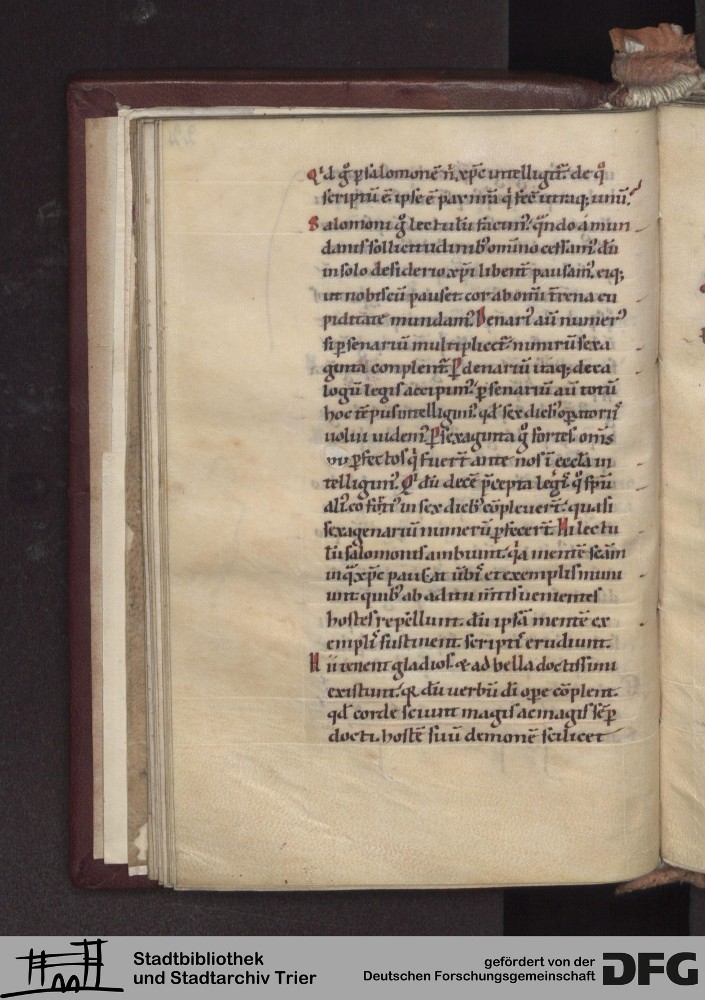 Qid g̊ ꝑ salomonē n̄ xp̄c intelligit̃. de q̊
scriptū ē. ipse ē pax nr̄a q̇ fec̄ utraq; unū.
Salomoni g̊ lectulū facim᷒. q̄ndo a mun
danis sollicitudinib᷒ om̄ino cessam᷒. dū
in solo desiderio xp̄i libent̄ pausam᷒. eiq;
ut nobiscū pauset cor ab om̄i t̄rena cu
piditate mundam᷒. Denari᷒ aū numer᷒
si ꝑ senariū multiplicet̃. nimirū sexa
ginta complent̃. P denariū itaq; deca
logū legis accipim᷒. ꝑ senariū aū totū
hoc tēpus intelligim᷒. qd̄ sex dieb᷒ oꝑatorii᷒
uolui uidem᷒. P sexaginta g̊ fortes. om̄s
ꝑfectos q̇ fuer̄t ante nos ī eccl̄a in
telligim᷒. Qi dū decē p̄cepta legi᷒ q̊ sp̄u
in sex dieb᷒ cōpleuer̄t. quasi
sexagenariū numerū ꝑfecer̄t. Hi lectu
lū salomonis ambiunt. q̇a mentē sc̄am
in q̄ xp̄c pausat uerbi᷒ et exemplis muni
unt. quib᷒ ab aditu m̄tis uenientes
hostes repellunt. dū ipsā mentē ex
empli᷒ sustinent. scripti᷒ erudiunt.
Hii tenent gladios. & ad bella doctissimi
existunt. q̇ dū uerbū dī oꝑe cōplent.
qd̄ corde sciunt magis ac magis sēꝑ
docti. hostē suū demonē scilicet
Stadtbibliothek
und Stadtarchiv Trier
gefördert von der
Deutschen Forschungsgemeinschaft
DFG